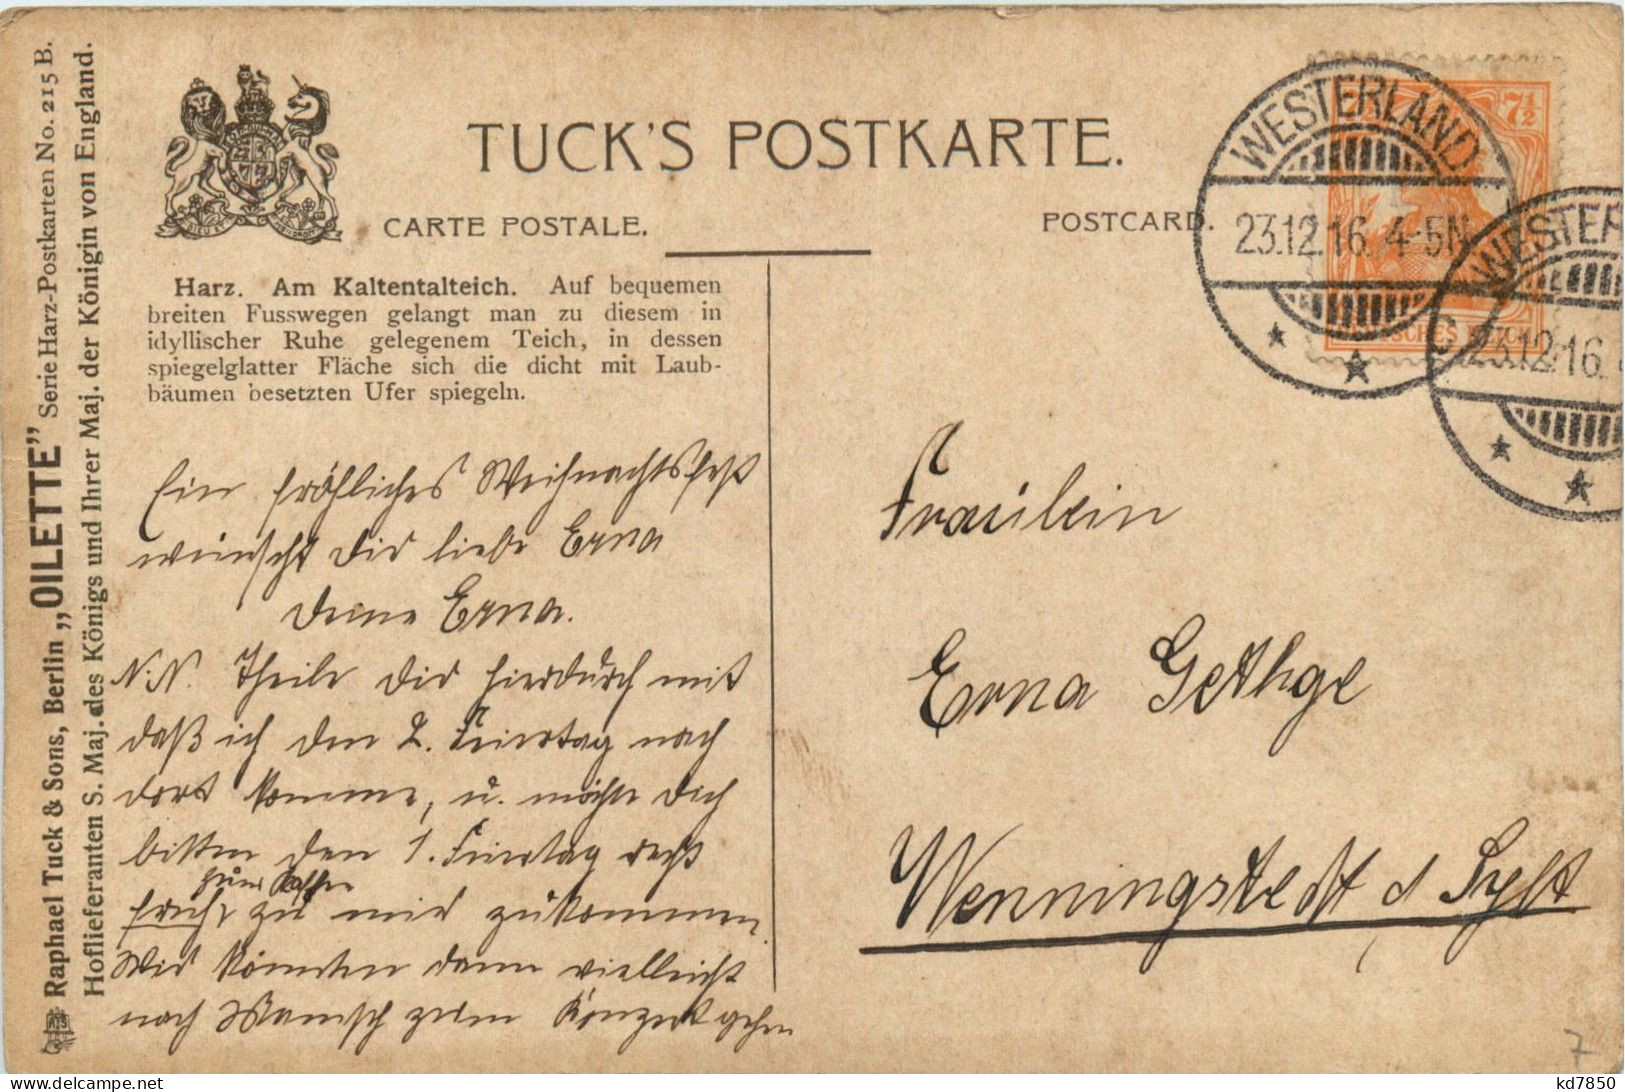 TUCK'S POSTKARTE.
CARTE POSTALE.
POSTCARD.
Harz. Am Kaltentalteich. Auf bequemen
breiten Fusswegen gelangt man zu diesem in
idyllischer Ruhe gelegenem Teich, in dessen
spiegelglatter Fläche sich die dicht mit Laub-
bäumen besetzten Ufer spiegeln.
Raphael Tuck & Sons, Berlin „OILETTE" Serie Harz-Postkarten No. 215 B.
Hoflieferanten S. Maj. des Königs und Ihrer Maj. der Königin von England.
WESTERLAND
23.12.16. 4-5N
7½
WESTER
23.12.16.
Ein fröhliches Weihnachtsfest
wünscht Dir liebe Erna
Deine Erna.
N.N. Theile Dir hierdurch mit
daß ich den 2. Feiertag nach
dort komme, u. möchte Dich
bitten den 1. Feiertag recht
zum Kaffee
früh zu mir zukommen.
Wir könnten dann vielleicht
noch zum Konzert gehen
Fräulein
Erna Gethge
Wenningstedt a/ Sylt
7
kd7850